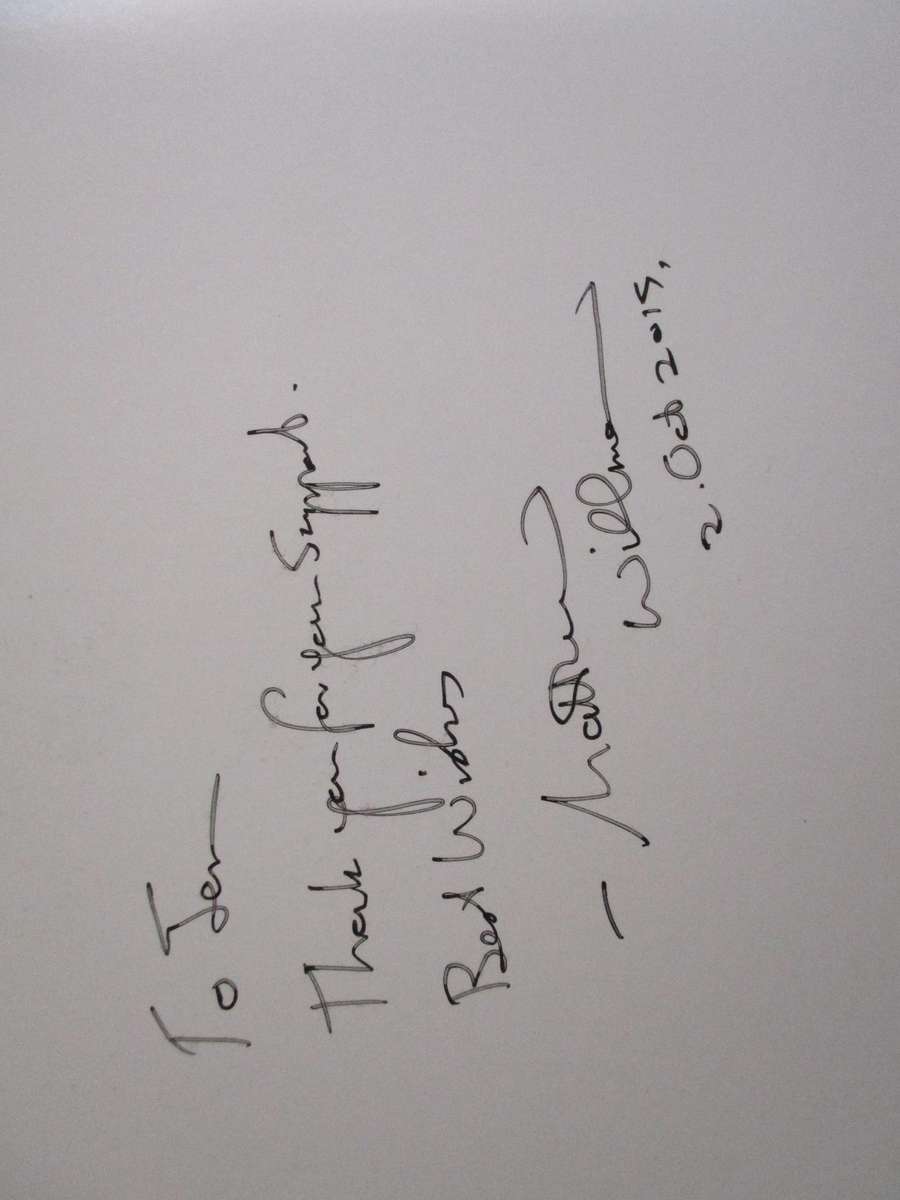 To Jen
Thank you for your support.
Best Wishes
- Matthew
Willma
2. Oct 2015.